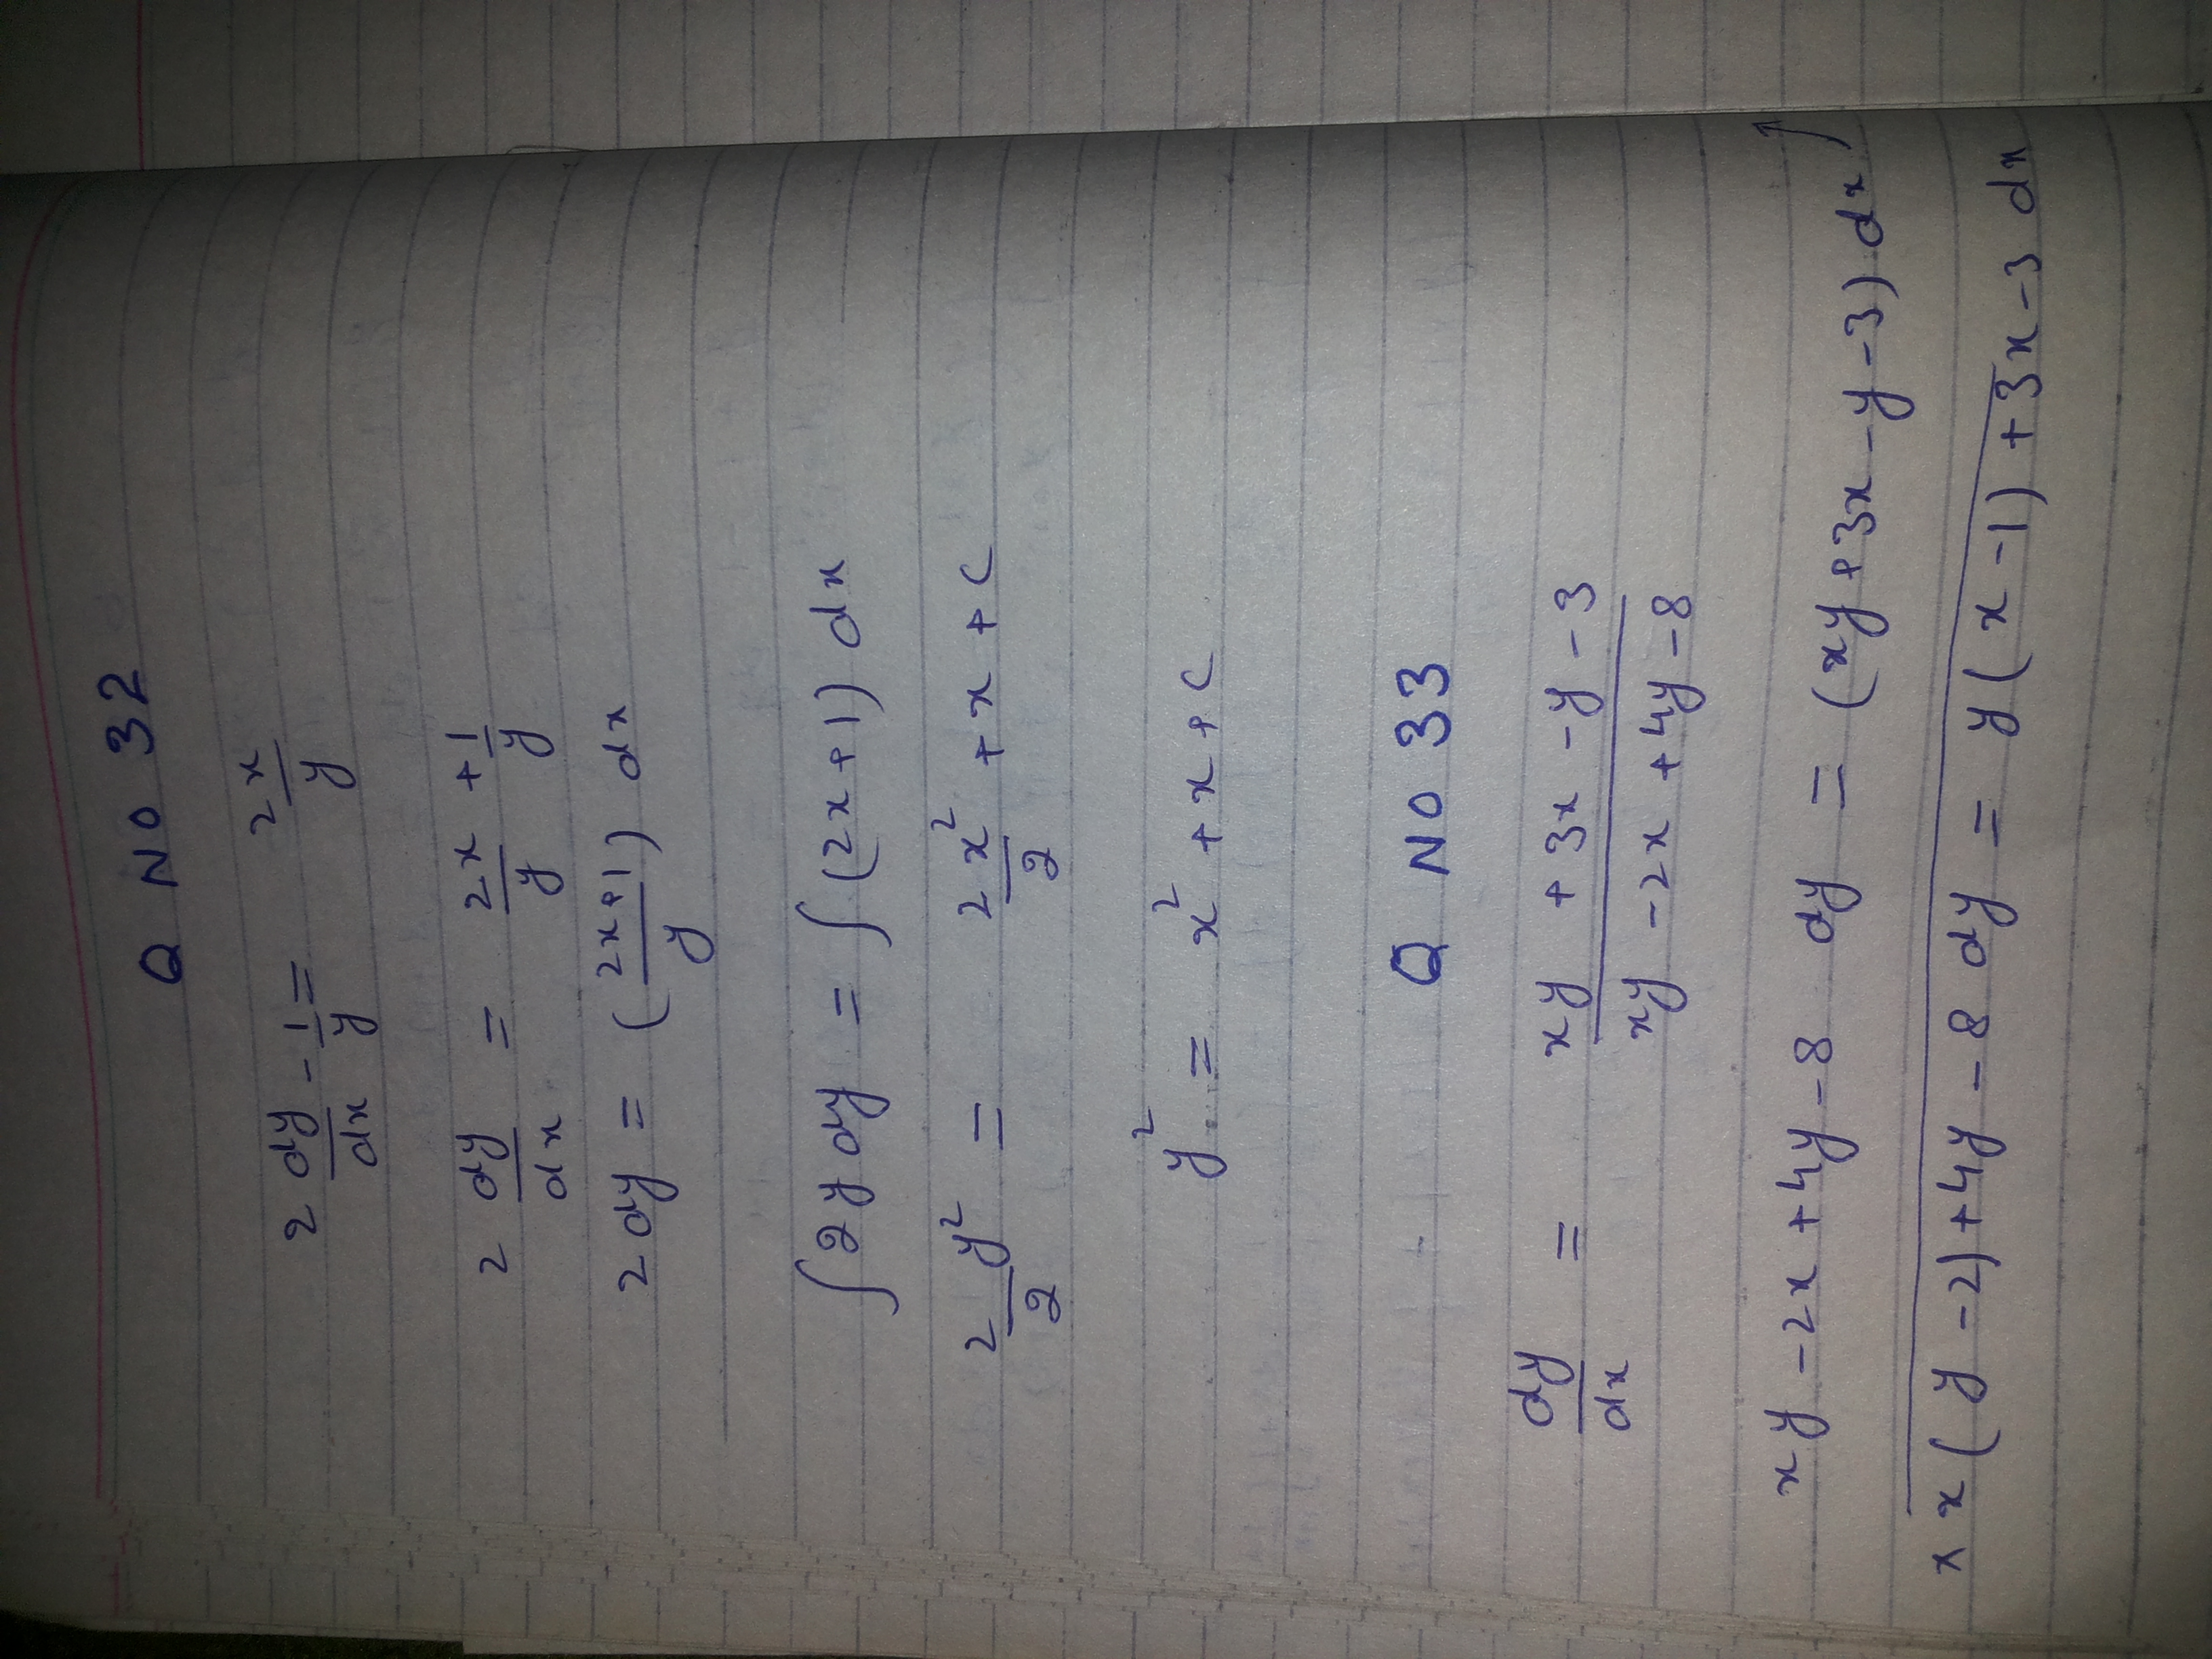 Q NO 32
2 dy/dx - 1/y = 2x/y
2 dy/dx = 2x/y + 1/y
2dy = (2x+1/y) dx
∫2y dy = ∫(2x+1) dx
2/2 y² = 2x²/2 + x + c
y² = x² + x + c
Q NO 33
dy/dx = xy + 3x - y - 3 / xy - 2x + 4y - 8
xy - 2x + 4y - 8 dy = (xy + 3x - y - 3) dx
x x(y - 2) + 4y - 8 dy = y(x - 1) + 3x - 3 dx